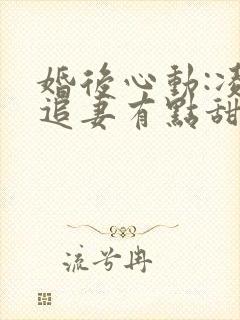 婚後心動:凌
追妻有點甜
流兮冉